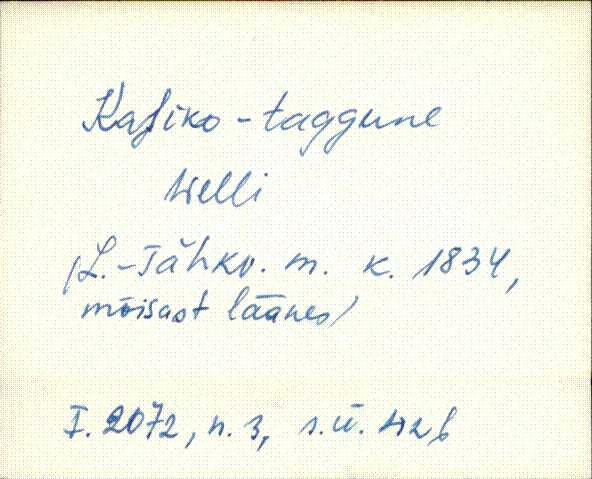 Kasiko-taggune
welli
(L.-Tähkv. m. k. 1834,
mõisast läänes)
I. 2072, n. 3, s.ü. 42b